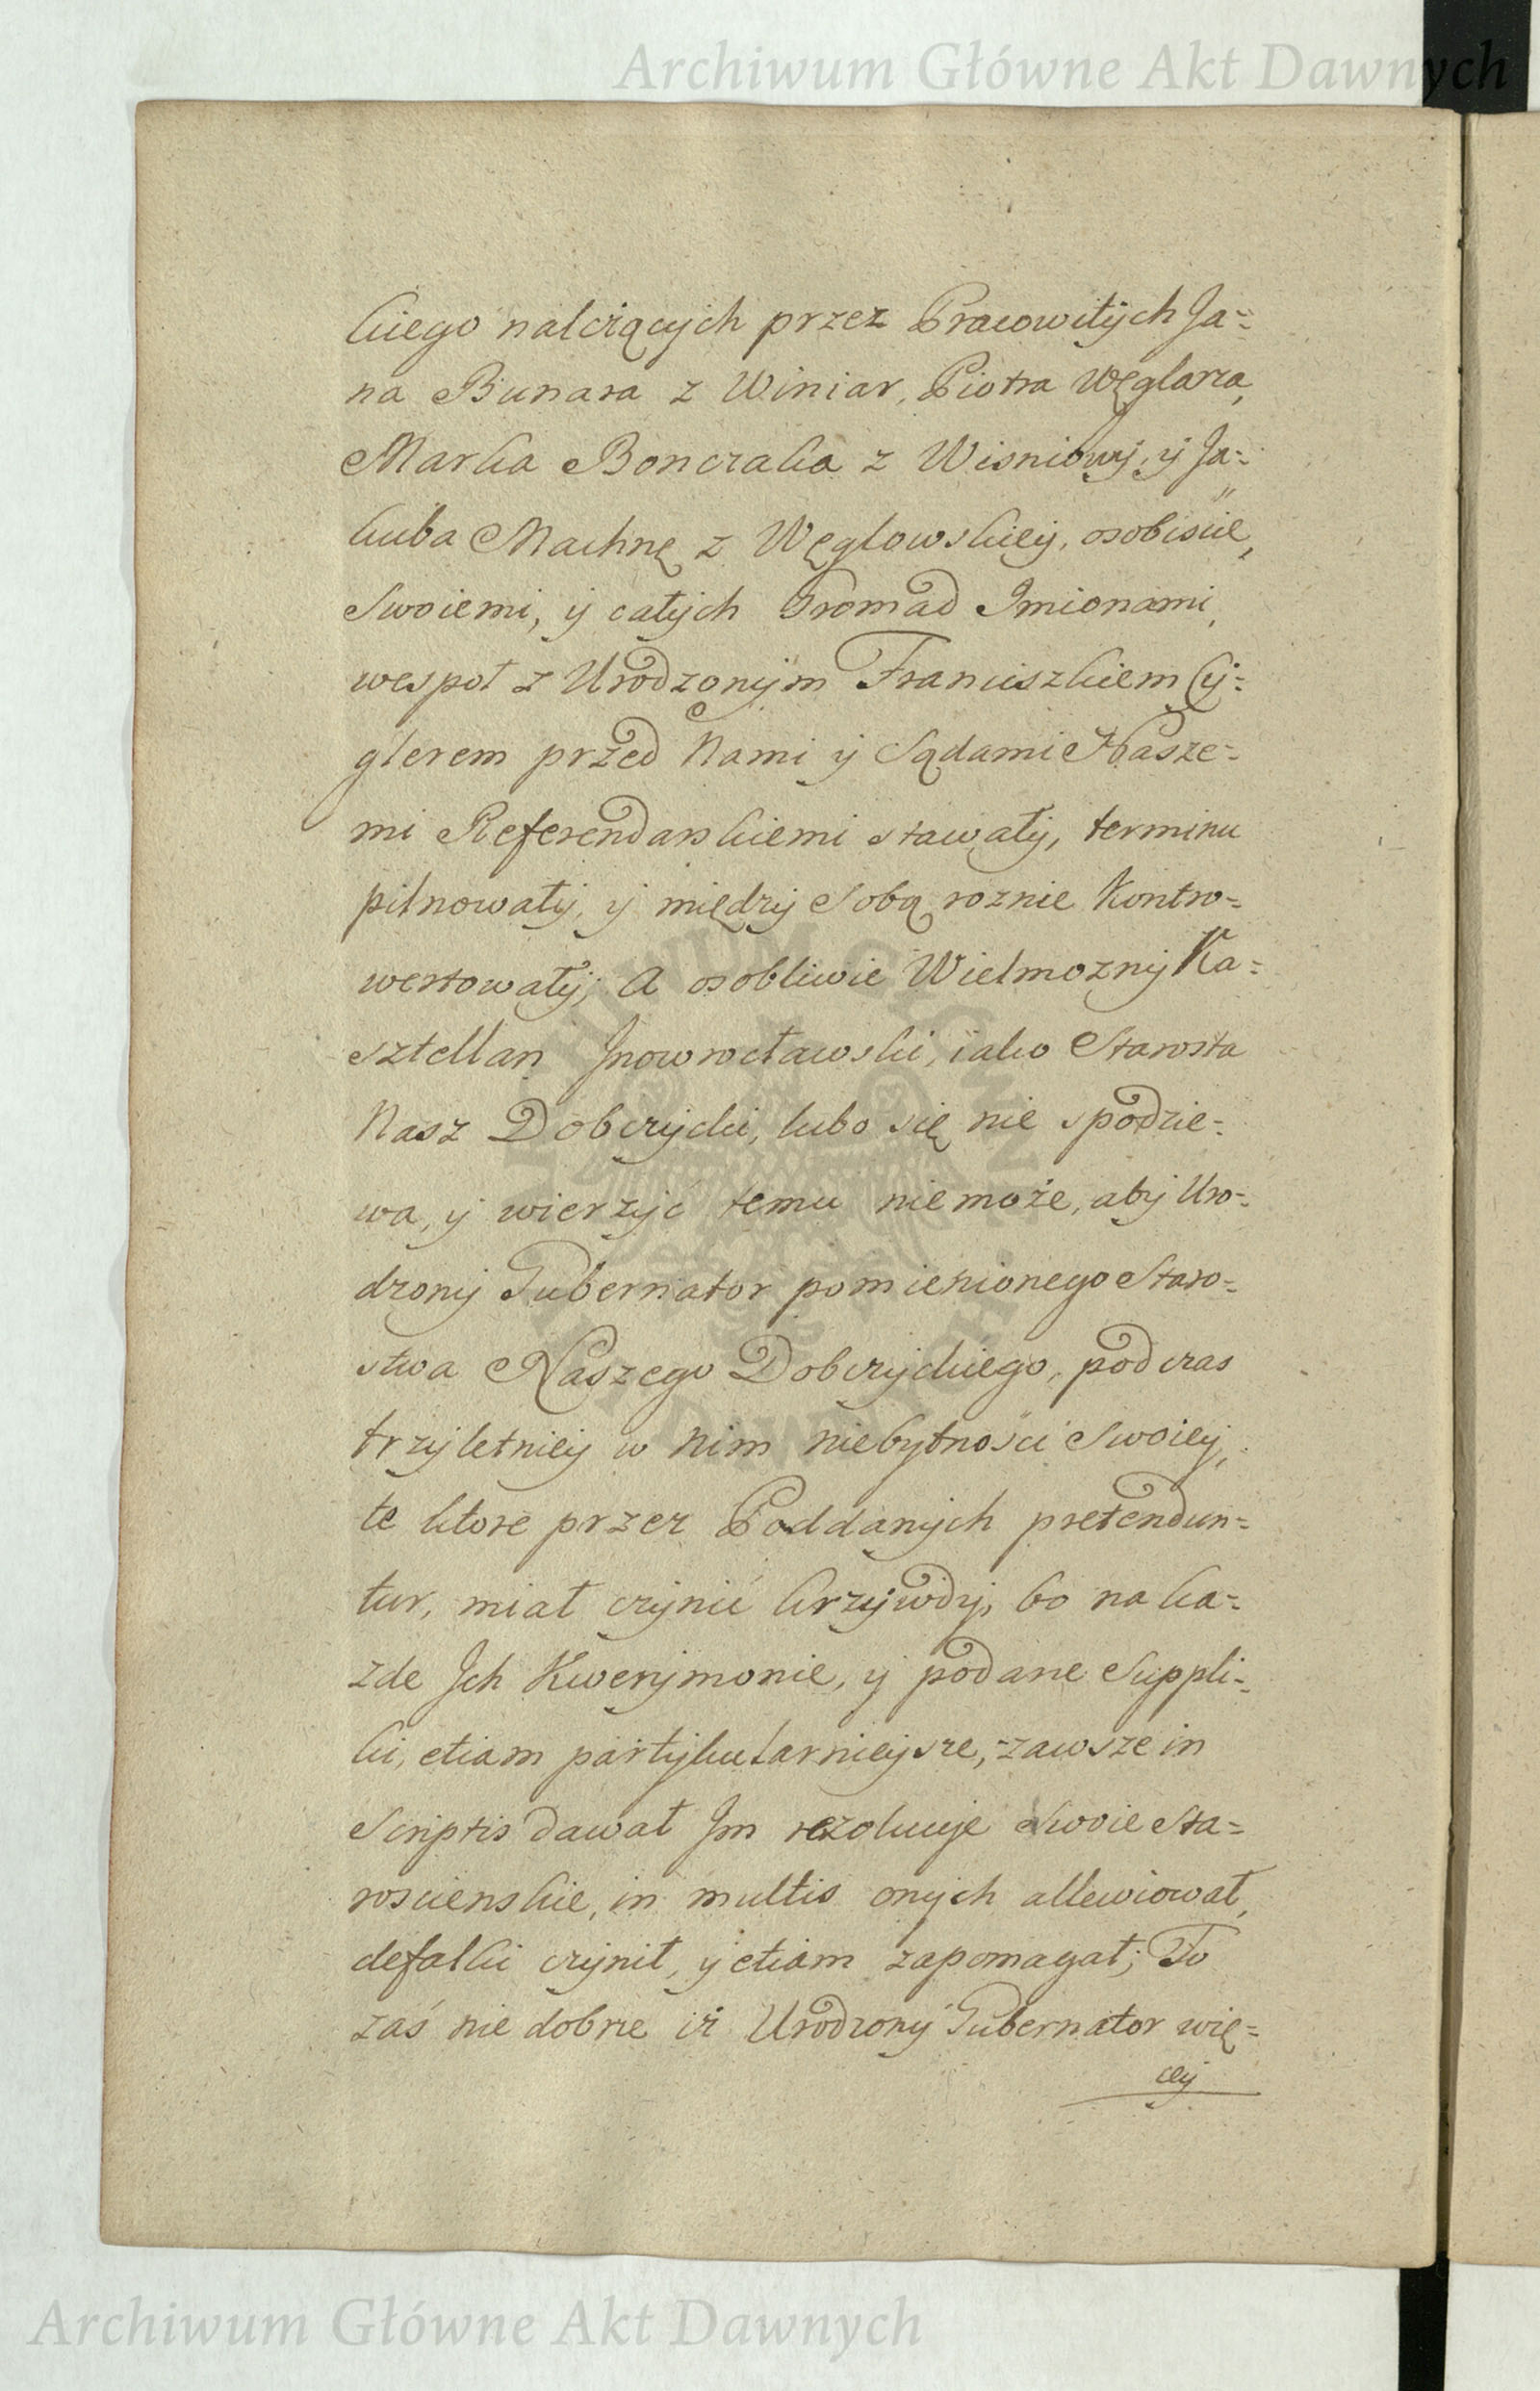 Archiwum Główne Akt Dawnych
kiego należących przez Pracowitych Ja=
na Bunara z Winiar, Piotra Węglarza,
Marka Bonczaka z Wisniowy, y Ja=
kuba Machnę z Węglowskiey, osobiscie,
Swoiemi, y całych Gromad Imionami,
wespoł z Urodzonym Franciszkiem Cy=
glerem przed Nami y Sądami Nasze=
mi Referendarskiemi stawały, terminu
pilnowały, y między Sobą roznie Kontro=
wertowały; A osobliwie Wielmozny Ka=
sztellan Jnowrocławski, iako Starosta
Nasz Dobczycki, lubo się nie spodzie=
wa, y wierzyć temu nie może, aby Uro=
dzony Gubernator pomienionego Staro=
stwa Naszego Dobczyckiego, pod czas
trzyletniey w nim niebytności Swoiey,
te ktore przez Poddanych pretendun=
tur, miał czynić krzywdy, bo na ka=
zde Jch Kwerymonie, y podane Suppli=
ki, etiam partykularnieysze, zawsze in
Scriptis dawał Jm rezolucye Swoie Sta=
roscienskie, in multis onych allewiował,
defalki czynił, y etiam zapomagał; To
zaś nie dobrze iż Urodzony Gubernator wię=
cey
Archiwum Główne Akt Dawnych